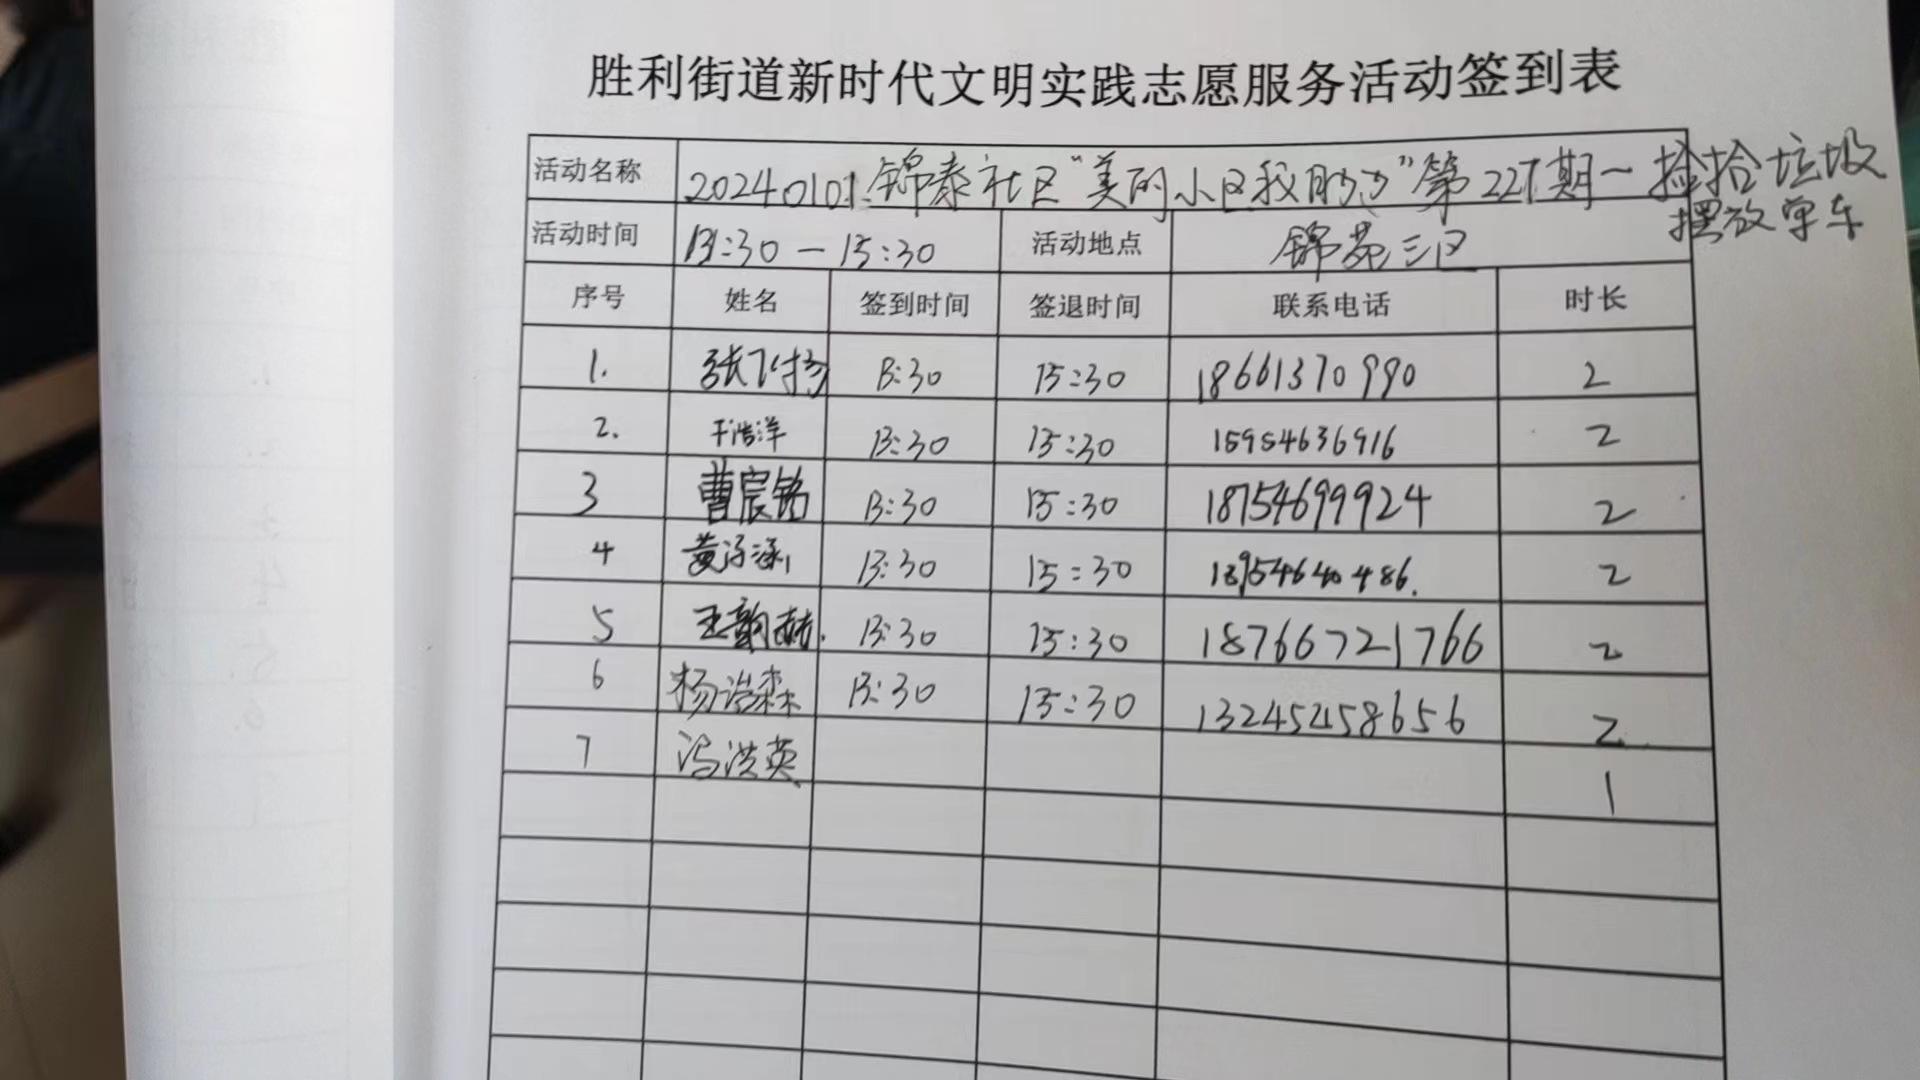 胜利街道新时代文明实践志愿服务活动签到表
活动名称 20240101.锦泰社区“美的小区我的家”第227期一捡拾垃圾
摆放单车
活动时间 13:30 — 15:30 活动地点 锦苑三区
序号 姓名 签到时间 签退时间 联系电话 时长
1. 张飞扬 13:30 15:30 18661370990 2
2. 于浩洋 13:30 15:30 15954636916 2
3 曹宸铭 13:30 15:30 18754699924 2
4 黄 涵 13:30 15:30 18954640486. 2
5 王韵赫. 13:30 15:30 18766721766 2
6 杨浩森 13:30 15:30 13245458656 2
7 冯洪英 1